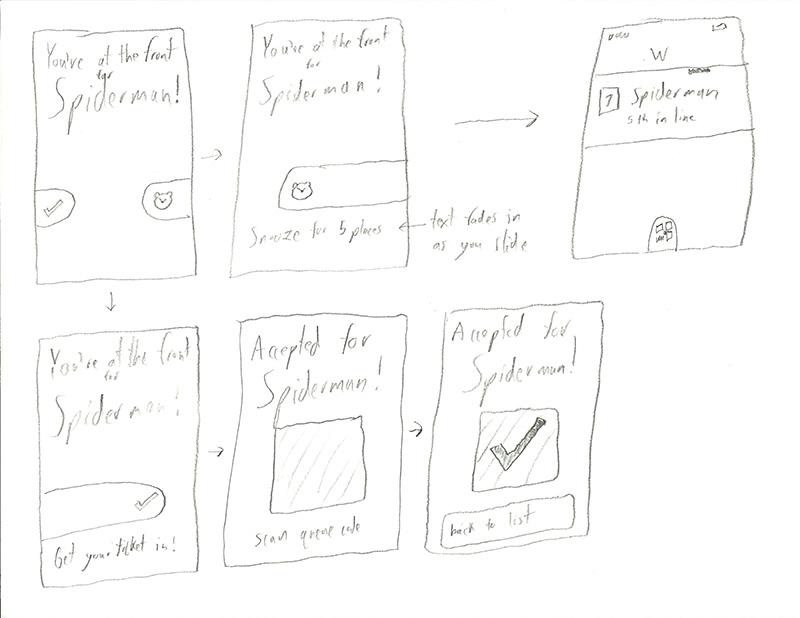 You're at the front
for
Spiderman!
You're at the front
for
Spiderman!
Snooze for 5 places
text fades in
as you slide
W
7 Spiderman
5th in line
You're at the front
for
Spiderman!
Get your ticket in!
Accepted for
Spiderman!
scan queue code
Accepted for
Spiderman!
back to list